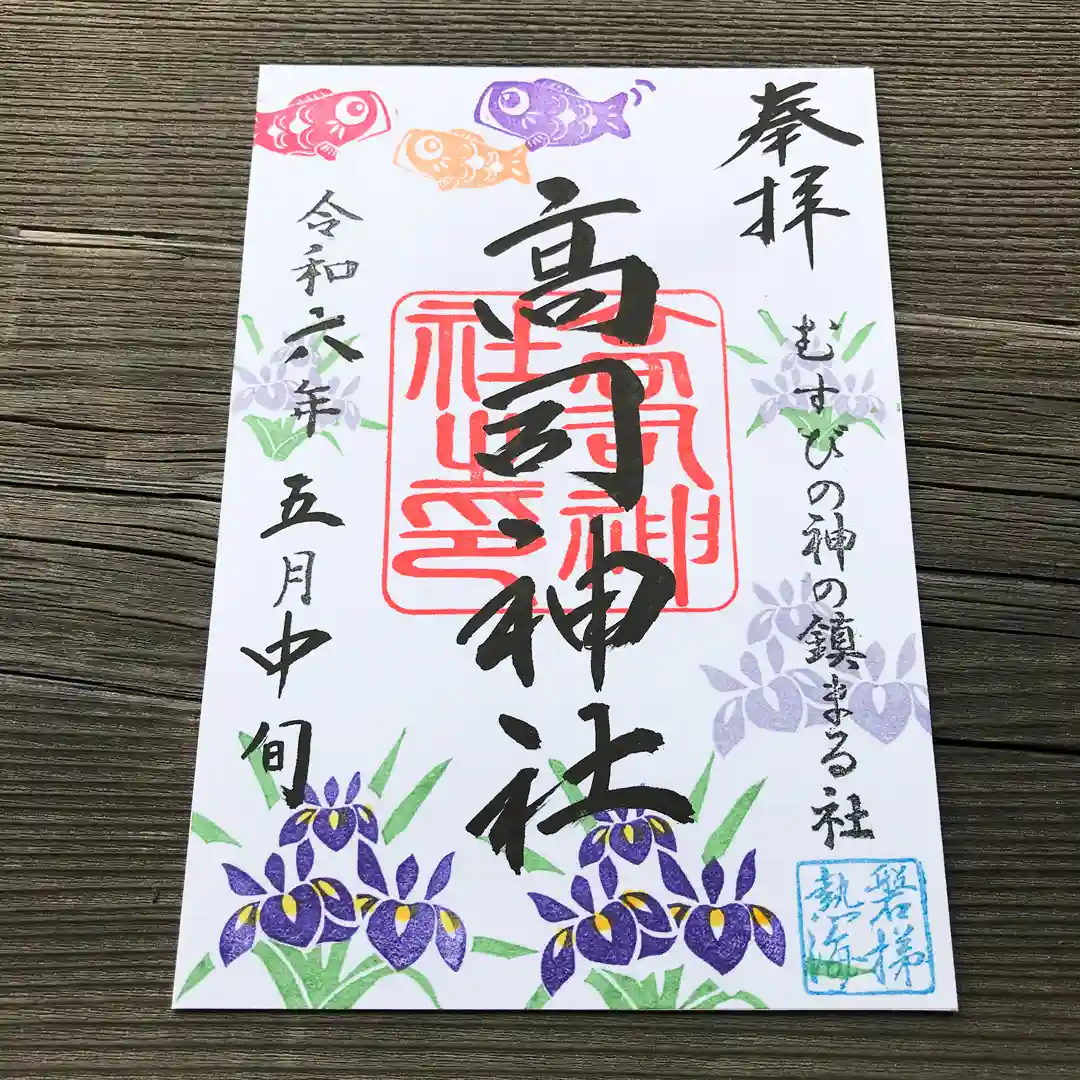 奉拝
むすびの神の鎮まる社
磐梯
熱海
高司神社
高司神
社之印
令和六年五月中旬